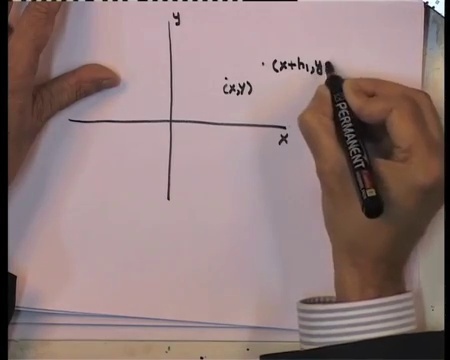 y
(x+h,y
(x,y)
x
PERMANENT